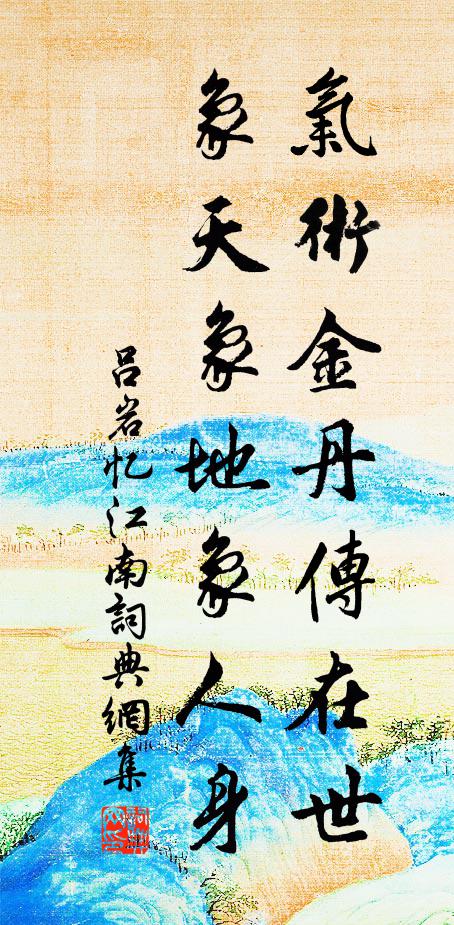 氣術金丹傳在世
象天象地象人身
吕岩忆江南詞典網集